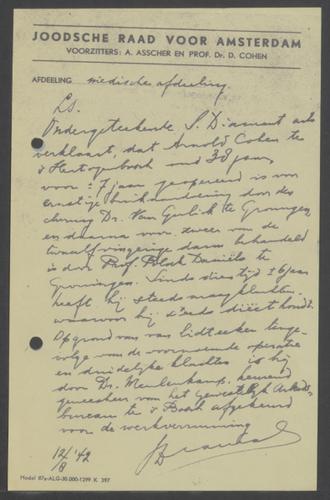 JOODSCHE RAAD VOOR AMSTERDAM
VOORZITTERS: A. ASSCHER EN PROF. Dr. D. COHEN
AFDEELING medische afdeeling
L.S.
Ondergeteekende, S. Diamant arts
verklaart, dat Arnold Cohen te
's Hertogenbosch oud 38 jaar,
voor ± 7 jaar geopereerd is voor
ernstige buikaandoening door den
chirurg Dr. Van Gulik te Groningen,
en daarna voor zweer van de
twaalfvingerige darm behandeld
is door Prof. Polak Daniëls te
Groningen. Sinds dien tijd ± 6 jaar
heeft hij steeds maagklachten,
waarvoor hij steeds dieët houdt.
Op grond van lidteeken tenge-
volge van de voornoemde operatie
en duidelijke klachten is hij
door Dr. Meulenkamp, keurend
geneesheer van het Gewestelijk Arbeids-
bureau te 's Bosch afgekeurd
voor de werkverruiming
12/8 '42
SDiamant
Model 87a-ALG-30.000-1299 K 397